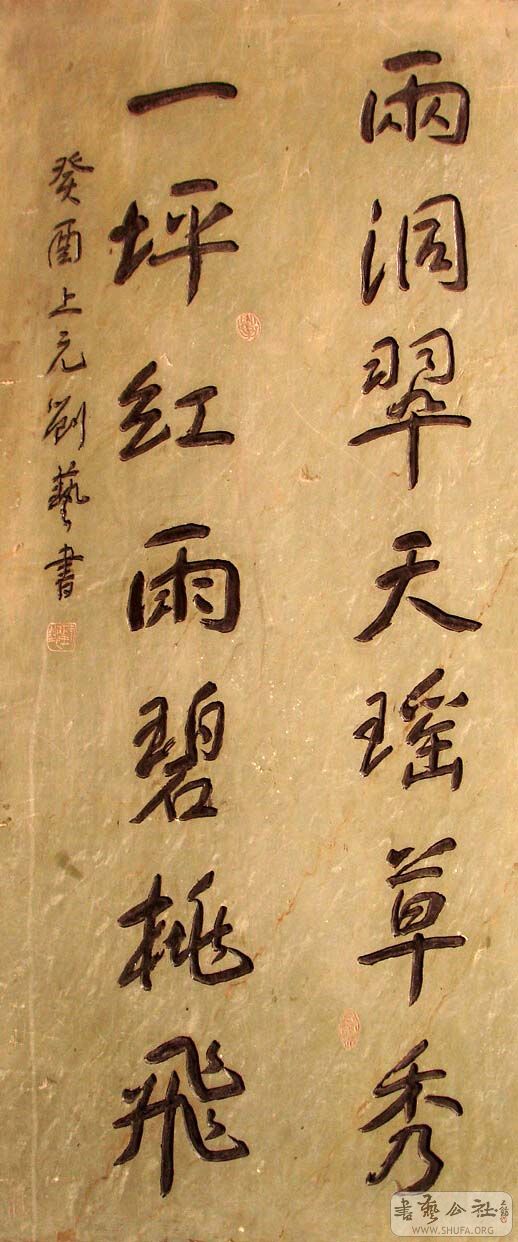 兩洞翠天瑶草秀
一坪紅雨碧桃飛
癸酉上元劉藝書
書藝公社
WWW.SHUFA.ORG